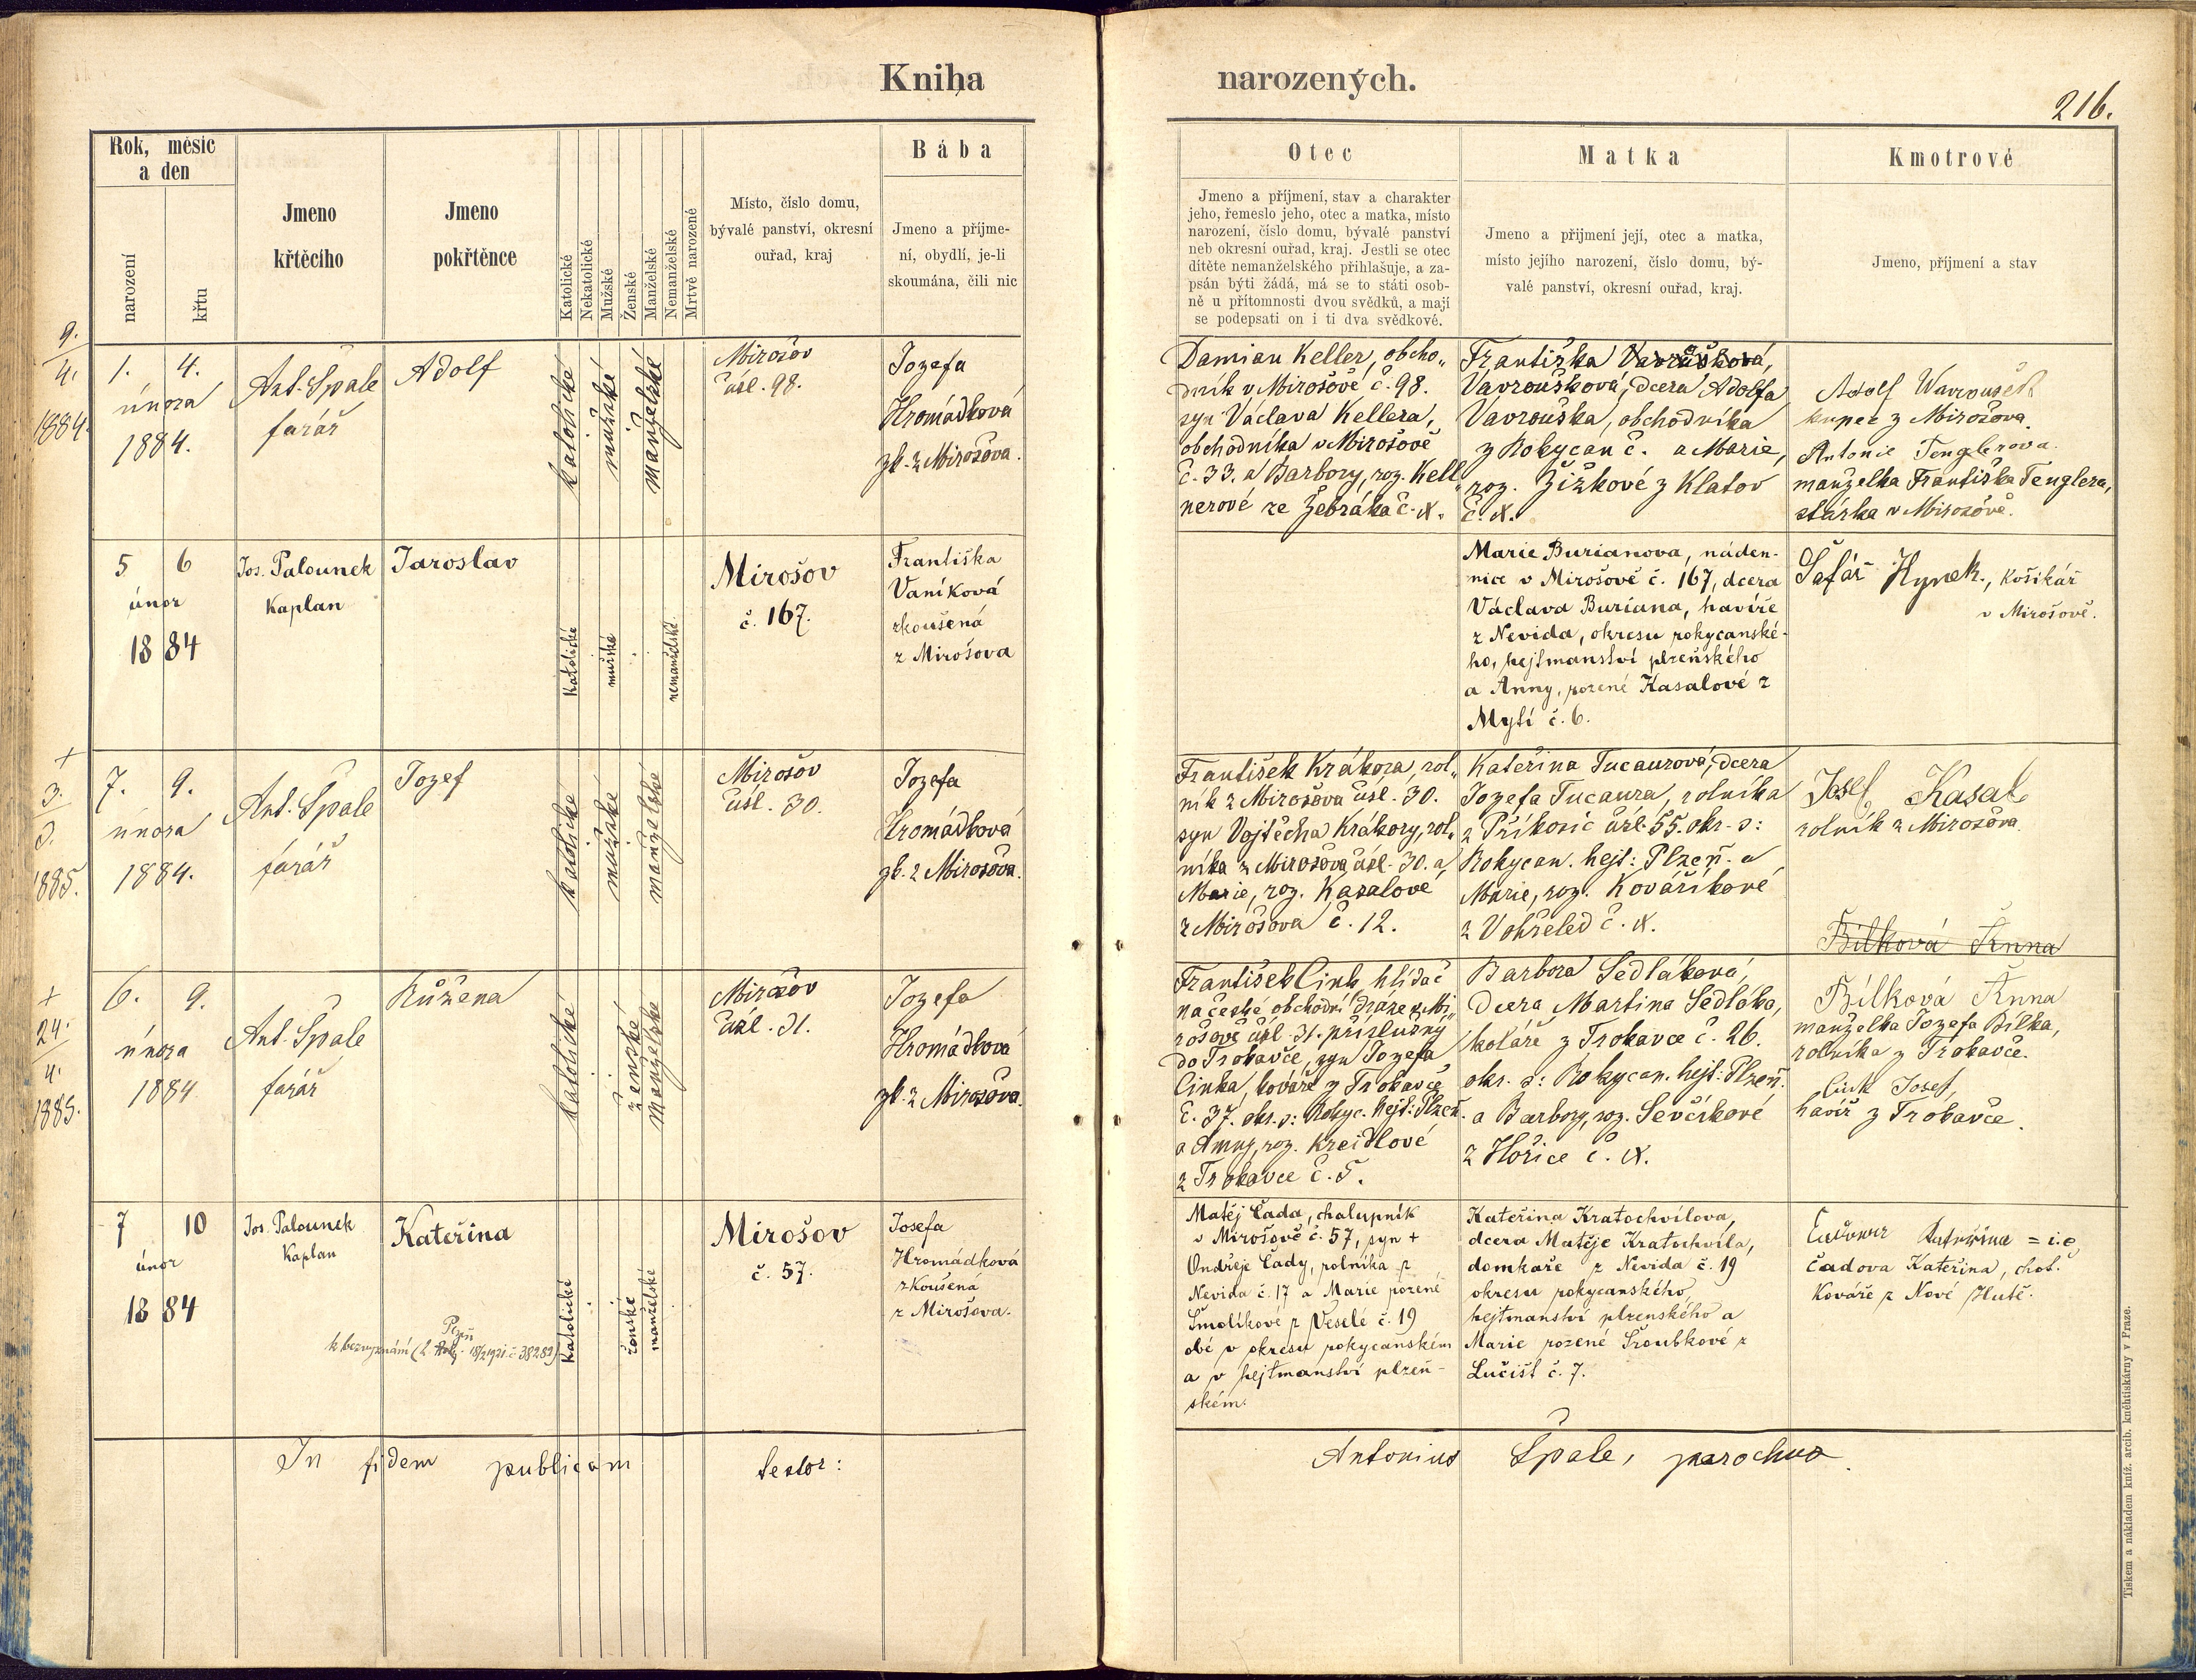 Kniha narozených.
216.
Rok, měsíc
a den
narození
křtu
Jmeno
křtěcího
Jmeno
pokřtěnce
Katolické
Nekatolické
Mužské
Ženské
Manželské
Nemanželské
Mrtvě narozené
Místo, číslo domu,
bývalé panství, okresní
ouřad, kraj
Bába
Jmeno a příjme-
ní, obydlí, je-li
skoumána, čili nic
Otec
Jmeno a příjmení, stav a charakter
jeho, řemeslo jeho, otec a matka, místo
narození, číslo domu, bývalé panství
neb okresní ouřad, kraj. Jestli se otec
dítěte nemanželského přihlašuje, a za-
psán býti žádá, má se to státi osob-
ně u přítomnosti dvou svědků, a mají
se podepsati on i ti dva svědkové.
Matka
Jmeno a přijmení její, otec a matka,
místo jejího narození, číslo domu, bý-
valé panství, okresní ouřad, kraj.
Kmotrové
Jmeno, příjmení a stav
9.
4.
1884.
1. 4.
února
1884.
Ant. Špale
farář
Adolf
katolické
mužské
manželské
Mirošov
čísl. 98.
Jozefa
Hromádková
zk. z Mirošova.
Damian Keller, obcho„
dník v Mirošově č. 98.
syn Václava Kellera,
obchodníka v Mirošově
č. 33. a Barbory, roz. Kell„
nerové ze Žebráka č. X.
Františka Vavrušková,
Vavroušková, dcera Adolfa
Vavrouška, obchodníka
z Rokycan č. a Marie,
roz. Žižkové z Klatov
č. X.
Adolf Wavroušek
kupec z Mirošova.
Antonie Tenglerova.
manželka Františka Tenglera,
stárka v Mirošově.
5 6
únor
1884
Jos. Palounek
Kaplan
Jaroslav
katolické
mužské
nemanželské
Mirošov
č. 167.
Františka
Vaníková
zkoušená
z Mirošova
Marie Burianova, náden-
nice v Mirošově č. 167, dcera
Václava Buriana, havíře
z Nevida, okresu rokycanské-
ho, hejtmanství plzeňského
a Anny, rozené Kasalové z
Mýtí č. 6.
Šafář Hynek, košikář
v Mirošově.
+
3.
1885.
7. 9.
února
1884.
Ant. Špale
farář
Jozef
katolické
mužské
manželské
Mirošov
čísl. 30.
Jozefa
Hromádková
zk. z Mirošova.
František Krákora, rol„
ník z Mirošova čísl. 30.
syn Vojtěcha Krákory, rol„
níka z Mirošova čísl. 30. a
Marie, roz. Kasalové
z Mirošova č. 12.
Kateřina Tucaurová, dcera
Jozefa Tucaura, rolníka
z Příkosic čísl. 55. okr. s:
Rokycan. hejt: Plzeň. a
Marie, roz. Kováříkové
z Vokřeled č. X.
Josef Kasal
rolník z Mirošova.
Bílková Anna
+
24.
4.
1885.
6. 9.
února
1884.
Ant. Špale
farář
Růžena
katolické
ženské
manželské
Mirošov
čísl. 31.
Jozefa
Hromádková
zk. z Mirošova.
František Cink, hlídač
na české obchodní dráze v Mi„
rošově čísl. 31. příslušný
do Trokavce, syn Jozefa
Cinka, kováře z Trokavce
č. 37. okr. s: Rokyc. hejt: Plzeň.
a Anny, roz. Kreidlové
z Trokavce č. 5.
Barbora Sedláková,
dcera Martina Sedláka,
koláře z Trokavce č. 26.
okr. s: Rokycan. hejt: Plzeň.
a Barbory, roz. Ševčíkové
z Hořice č. X.
Bílková Anna
manželka Jozefa Bílka,
rolníka z Trokavce.
Cink Josef,
havíř z Trokavce.
7 10
únor
1884
Jos. Palounek
Kaplan
Kateřina
k bezvyznání
katolické
ženské
manželské
Mirošov
č. 57.
Josefa
Hromádková
zkoušená
z Mirošova.
Matěj Čada, chalupník
v Mirošově č. 57, syn +
Ondřeje Čady, rolníka z
Nevida č. 17 a Marie rozené
Šmolíkové z Veselé č. 19
obé v okresu rokycanském
a v hejtmanství plzeň-
ském.
Kateřina Kratochvílova,
dcera Matěje Kratochvíla,
domkaře z Nevida č. 19
okresu rokycanského,
hejtmanství plzenského a
Marie rozené Šroubkové z
Lučišt č. 7.
Kateřina = i.e
Čadova Kateřina, choť
Kováře z Nové Hutě.
In fidem publicam testor:
Antonius Špale, parochus.
Tiskem a nákladem kníž. arcib. kněhtiskárny v Praze.